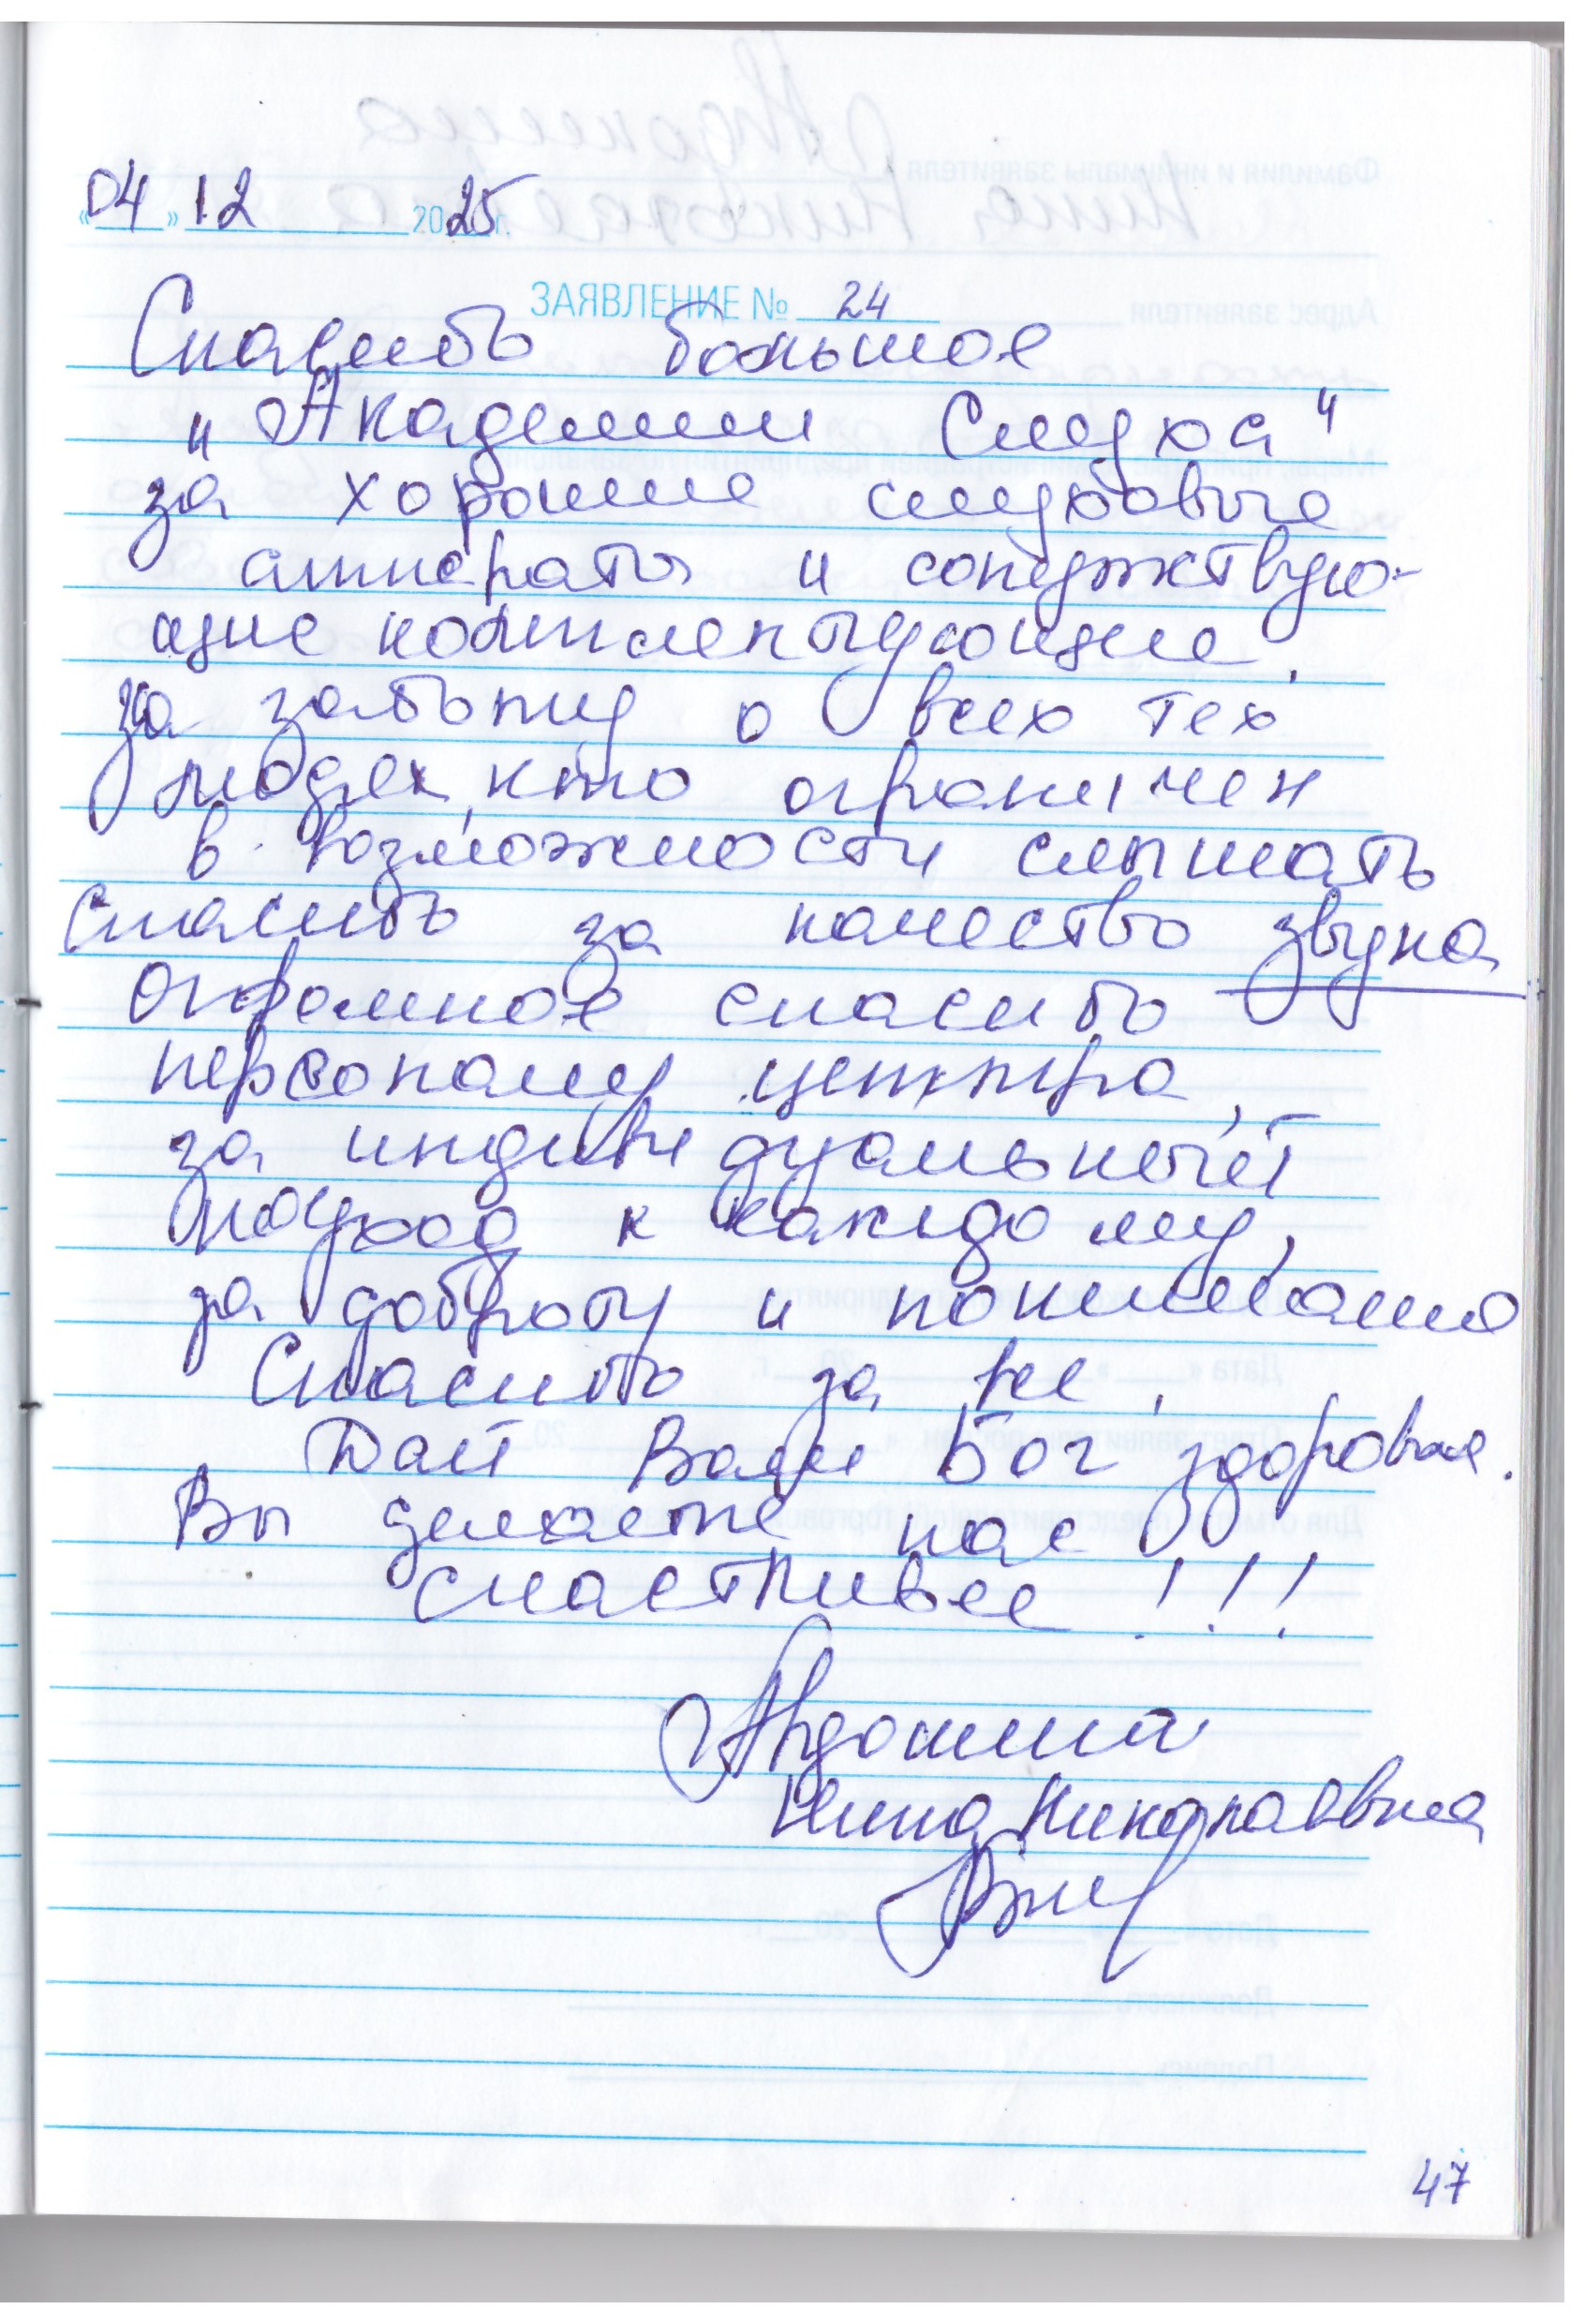 «04» 12 2025 г.
ЗАЯВЛЕНИЕ № 24
Спасибо большое
"Академии Слуха"
за хорошие слуховые
аппараты и сопутствую-
щие комплектующие.
За заботу о всех тех
людях, кто ограничен
в возможности слышать
Спасибо за качество звука
Огромное спасибо
персоналу центра,
за индивидуальный
подход к каждому,
за доброту и понимание
Спасибо за все.
Дай Вам Бог здоровья.
Вы делаете нас
счастливее !!!
Авдошина
Нина Николаевна
47